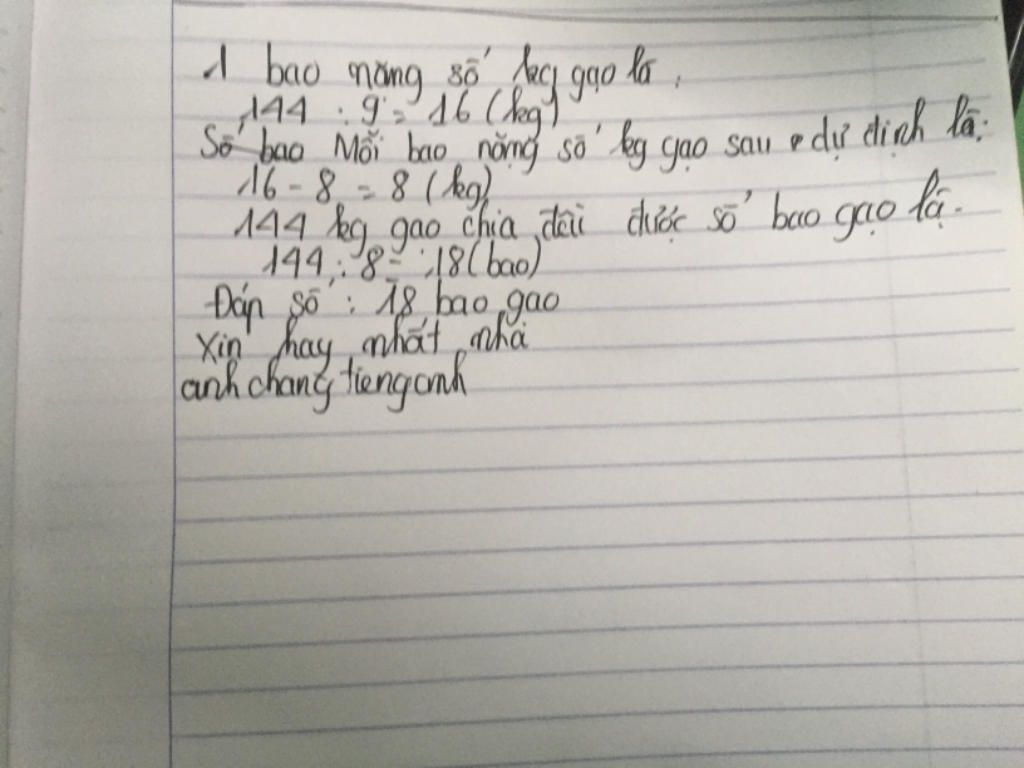 1 bao nặng số kg gạo là :
144 : 9 = 16 (kg)
Số bao Mỗi bao nặng số kg gạo sau dự định là:
16 - 8 = 8 (kg)
144 kg gạo chia đều được số bao gạo là.
144 : 8 = 18 (bao)
Đáp số : 18 bao gạo
Xin hay nhất nha
anh chang tienganh